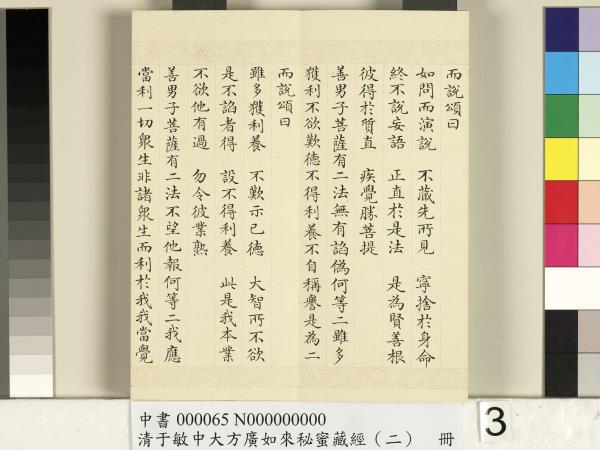 而說頌曰
如問而演說　不藏先所見　寧捨於身命
終不說妄語　正直於是法　是為賢善根
彼得於質直　疾覺勝菩提
善男子菩薩有二法無有諂偽何等二雖多
獲利不欲歎德不得利養不自稱譽是為二
而說頌曰
雖多獲利養　不歎示己德　大智所不欲
是不諂者得　設不得利養　此是我本業
不欲他有過　勿令彼業熟
善男子菩薩有二法不望他報何等二我應
當利一切眾生非諸眾生而利於我我當覺
中書 000065 N000000000
清于敏中大方廣如來秘蜜藏經（二）　冊
3